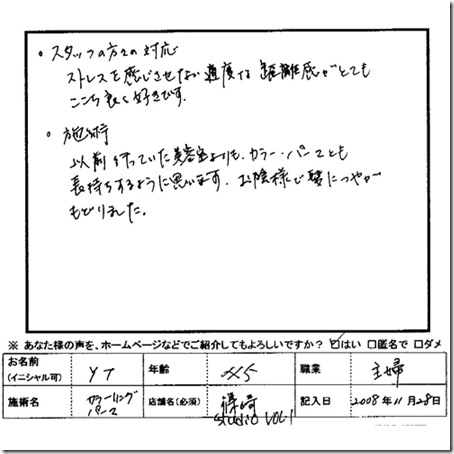 。スタッフの方々の対応
ストレスを感じさせない適度な距離感がとても
ここち良く好きです。
。施術
以前行っていた美容室よりも、カラー・パーマとも
長持ちするように思います。お陰様で髪につやが
もどりました。
※ あなた様の声を、ホームページなどでご紹介してもよろしいですか? ☑はい □匿名で □ダメ
お名前 (イニシャル可) YT 年齢 45 職業 主婦
施術名 カラーリング パーマ 店舗名(必須) 篠崎 studio VOL1 記入日 2008年11月28日